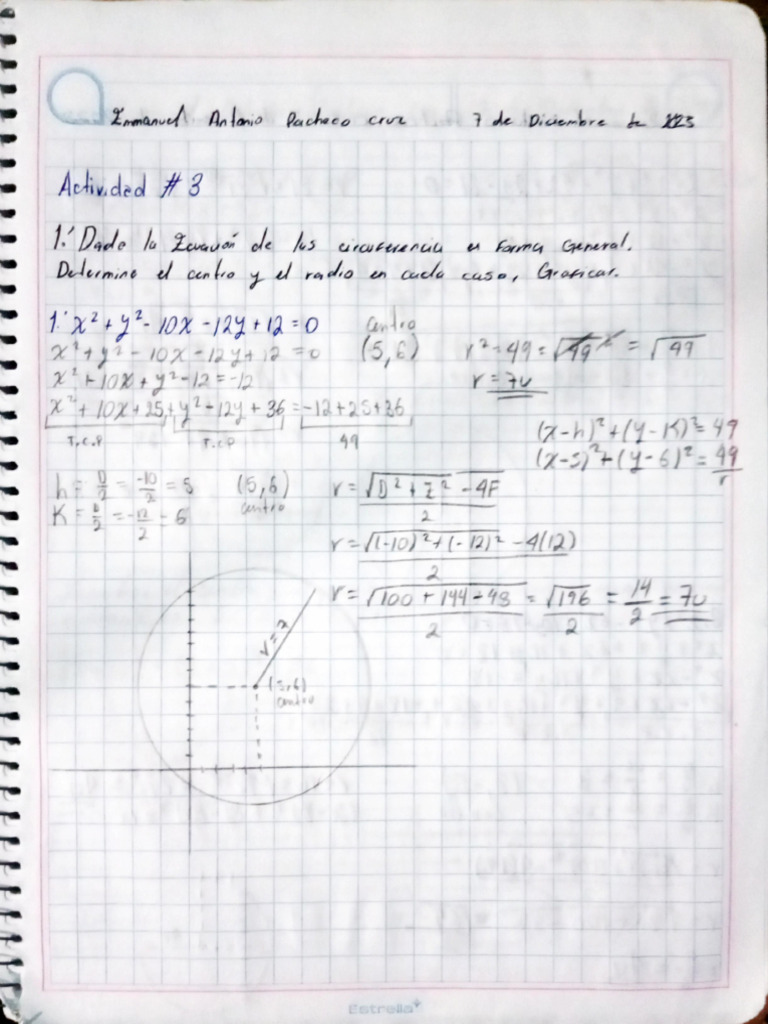 Emmanuel Antonio Pacheco Cruz 7 de Diciembre de 2023
Actividad # 3
1.' Dade la Ecuación de las circuferencia en Forma General.
Determine el centro y el radio en cada caso, Graficar.
1.' x² + y² - 10x - 12y + 12 = 0
x² + y² - 10x - 12y + 12 = 0
x² + 10x + y² - 12 = -12
x² + 10x + 25 + y² + 12y + 36 = -12 + 25 + 36
T.C.P T.C.P 49
centro
(5,6)
r² = 49 = √49 = √49
r = 7u
(x-h)² + (y-K)² = 49
(x-5)² + (y-6)² = 49
r
h = D/2 = -10/2 = 5 (5,6)
K = E/2 = -12/2 = 6 centro
r = √D² + E² - 4F / 2
r = √(-10)² + (-12)² - 4(12) / 2
r = √100 + 144 - 48 / 2 = √196 / 2 = 14/2 = 7u
r = 7
(5,6)
centro
Estrella